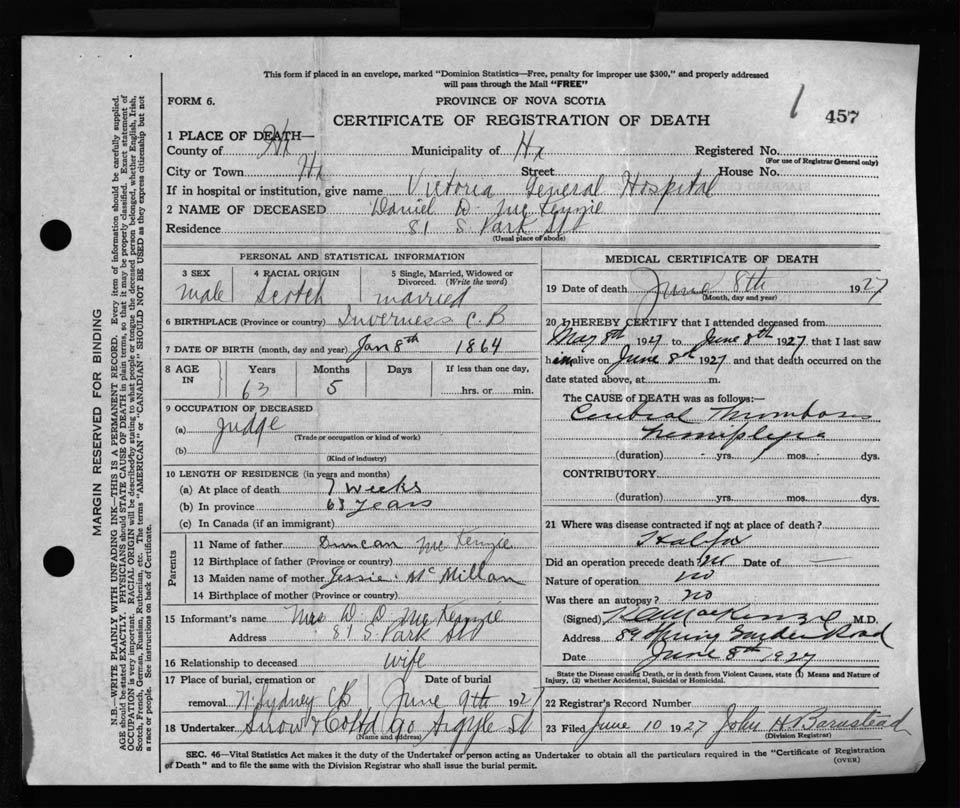 This form if placed in an envelope, marked "Dominion Statistics—Free, penalty for improper use $300," and properly addressed
will pass through the Mail "FREE"
FORM 6.
PROVINCE OF NOVA SCOTIA
1
457
CERTIFICATE OF REGISTRATION OF DEATH
1 PLACE OF DEATH—
County of Hx Municipality of Hx Registered No.
(For use of Registrar General only)
City or Town Hx Street House No.
If in hospital or institution, give name Victoria General Hospital
2 NAME OF DECEASED Daniel D. McKenzie
Residence 81 S. Park St
(Usual place of abode)
PERSONAL AND STATISTICAL INFORMATION
3 SEX 4 RACIAL ORIGIN 5 Single, Married, Widowed or
Divorced. (Write the word)
male Scotch married
6 BIRTHPLACE (Province or country) Inverness C.B
7 DATE OF BIRTH (month, day and year) Jan 8th 1864
8 AGE IN Years Months Days If less than one day,
63 5 hrs. or min.
9 OCCUPATION OF DECEASED
(a) Judge
(Trade or occupation or kind of work)
(b)
(Kind of industry)
10 LENGTH OF RESIDENCE (in years and months)
(a) At place of death 7 weeks
(b) In province 63 years
(c) In Canada (if an immigrant)
Parents
11 Name of father Duncan McKenzie
12 Birthplace of father (Province or country)
13 Maiden name of mother Jessie McMillan
14 Birthplace of mother (Province or country)
15 Informant's name Mrs D. D. McKenzie
Address 81 S. Park St
16 Relationship to deceased wife
17 Place of burial, cremation or Date of burial
removal N. Sydney CB June 9th 1927
18 Undertaker Snow & Co Ltd 90 Argyle St
(Name and address)
MEDICAL CERTIFICATE OF DEATH
19 Date of death June 8th 1927
(Month, day and year)
20 I HEREBY CERTIFY that I attended deceased from
May 8th 1927 to June 8th 1927, that I last saw
him alive on June 8th 1927 and that death occurred on the
date stated above, at m.
The CAUSE of DEATH was as follows:—
Cerebral Thrombosis
hemiplegia
(duration) yrs. mos. dys.
CONTRIBUTORY.
(duration) yrs. mos. dys.
21 Where was disease contracted if not at place of death?
Halifax
Did an operation precede death? no Date of —
Nature of operation no
Was there an autopsy? no
(Signed) MacKenzie M.D.
Address 89 Spring Garden Road
Date June 8th 1927
State the Disease causing Death, or in death from Violent Causes, state (1) Means and Nature of
Injury, (2) whether Accidental, Suicidal or Homicidal.
22 Registrar's Record Number
23 Filed June 10 1927 John H Barnstead
(Division Registrar)
SEC. 46—Vital Statistics Act makes it the duty of the Undertaker or person acting as Undertaker to obtain all the particulars required in the "Certificate of Registration
of Death" and to file the same with the Division Registrar who shall issue the burial permit.
(OVER)
MARGIN RESERVED FOR BINDING
N.B.—WRITE PLAINLY WITH UNFADING INK—THIS IS A PERMANENT RECORD. Every item of information should be carefully supplied.
AGE should be stated EXACTLY. PHYSICIANS should STATE CAUSE OF DEATH in plain terms, so that it may be properly classified. Exact statement of
OCCUPATION is very important. RACIAL ORIGIN will be described by stating to what people or tongue the deceased person belonged, whether English, Irish,
Scotch, French, German, Russian, Ruthenian, etc. The terms "AMERICAN" or "CANADIAN" SHOULD NOT BE USED as they express citizenship but not
a race or people. See instructions on back of Certificate.